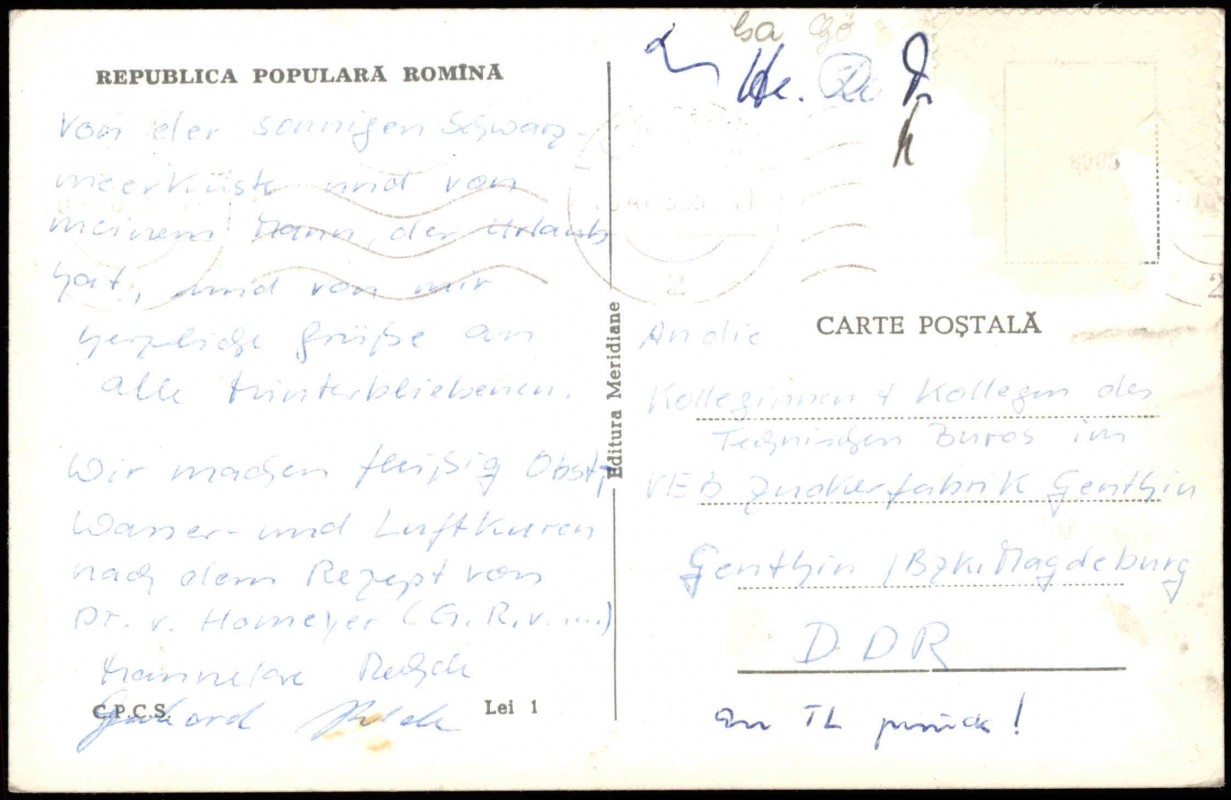 REPUBLICA POPULARĂ ROMÎNĂ
Von der sonnigen Schwarz-
meerküste und von
meinem Mann, der Urlaub
hat, und von mir
herzliche Grüße an
alle Hinterbliebenen.
Wir machen fleißig Obst-,
Wasser- und Luftkuren
nach dem Rezept von
Dr. v. Homeyer (G. R. v. ....)
Hannelore
Gerhard
C.P.C.S.
Lei 1
Editura Meridiane
He.
CARTE POȘTALĂ
An die
Kolleginnen + Kollegen des
Technischen Büros im
VEB Zuckerfabrik Genthin
Genthin / Bzk. Magdeburg
DDR
an TL zurück!
2